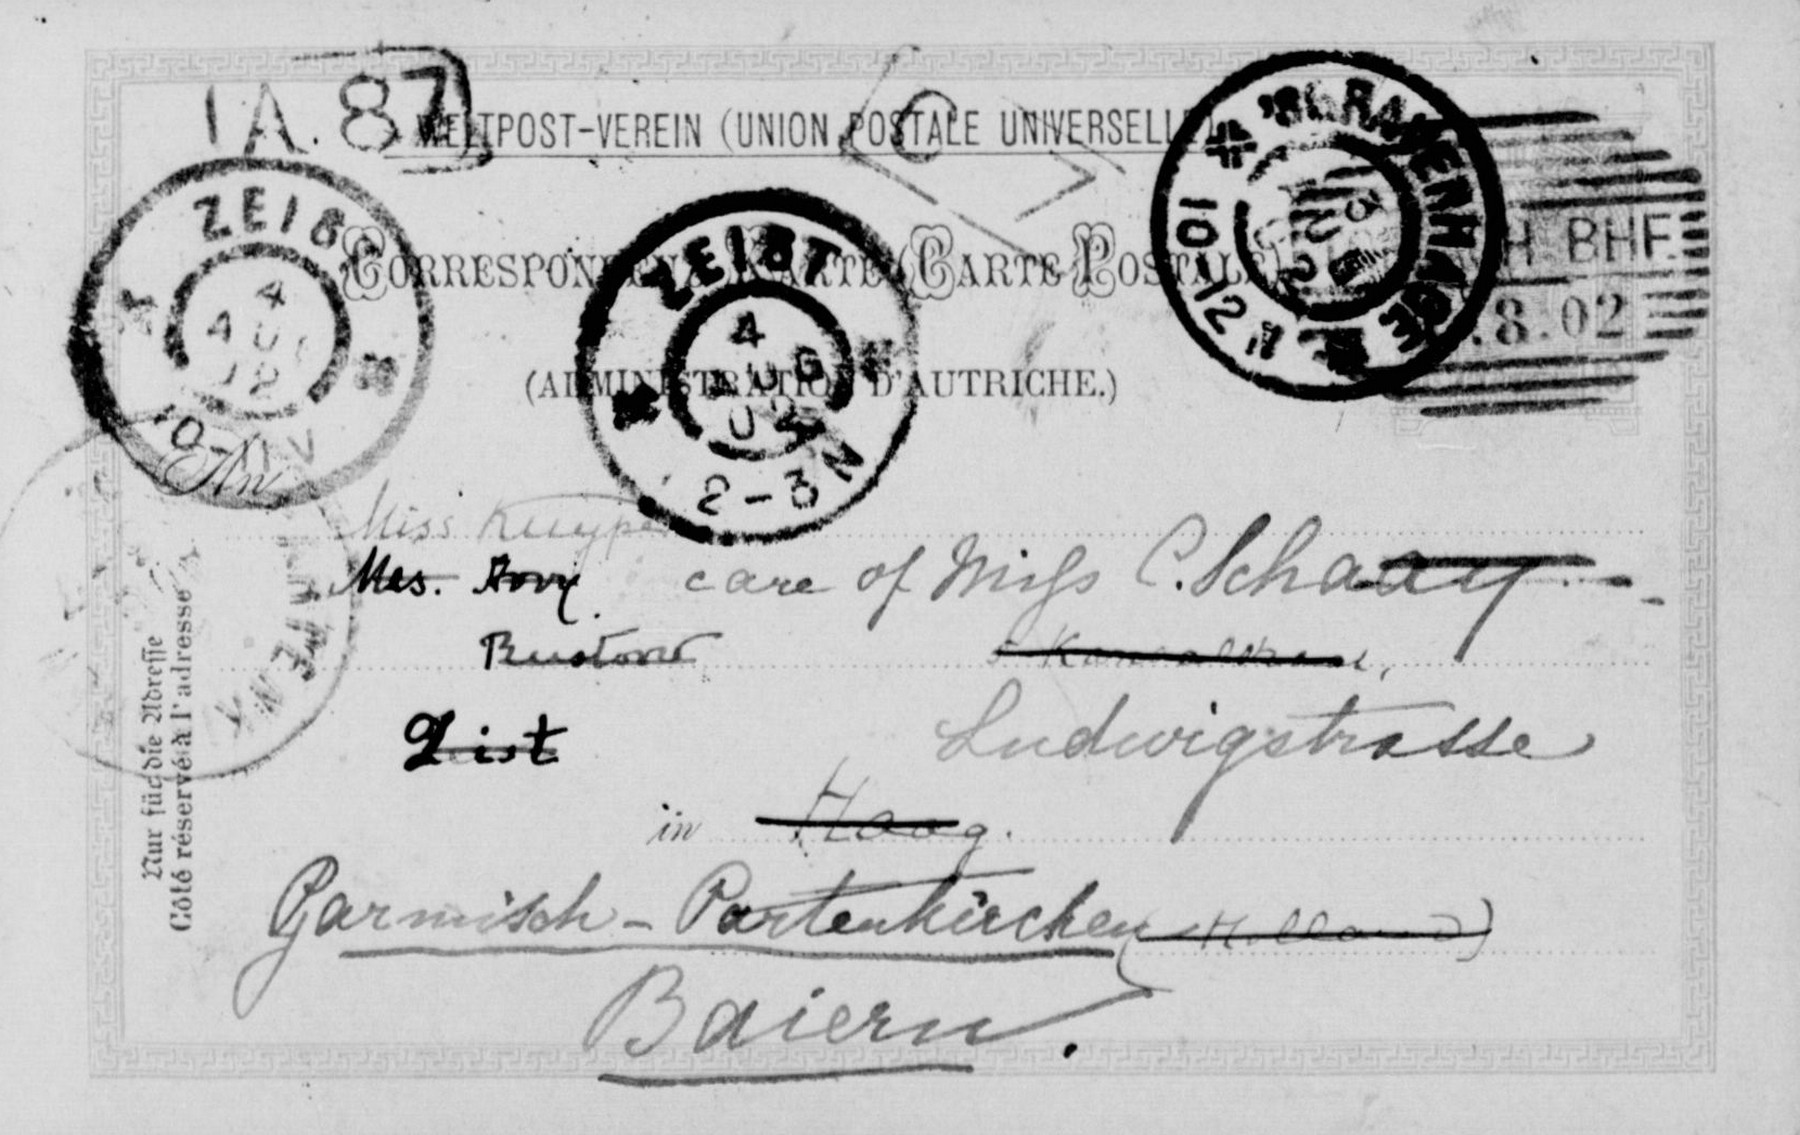 1A. 87
WELTPOST-VEREIN (UNION POSTALE UNIVERSELLE)
ZEIST
4 AUG 02
10-11V
ZEIST
4 AUG 02
2-3 N
'SGRAVENHAGE
10-12 V
H. BHF.
.8.02
CORRESPONDENZ-KARTE (CARTE POSTALE)
(ADMINISTRATION D'AUTRICHE.)
An
Miss Kuyper
care of Miss C. Schaay
Ludwigstrasse
Zeist
in Haag.
Garmisch - Partenkirchen (Holland)
Baiern.
Nur für die Adresse
Côté réservé à l'adresse